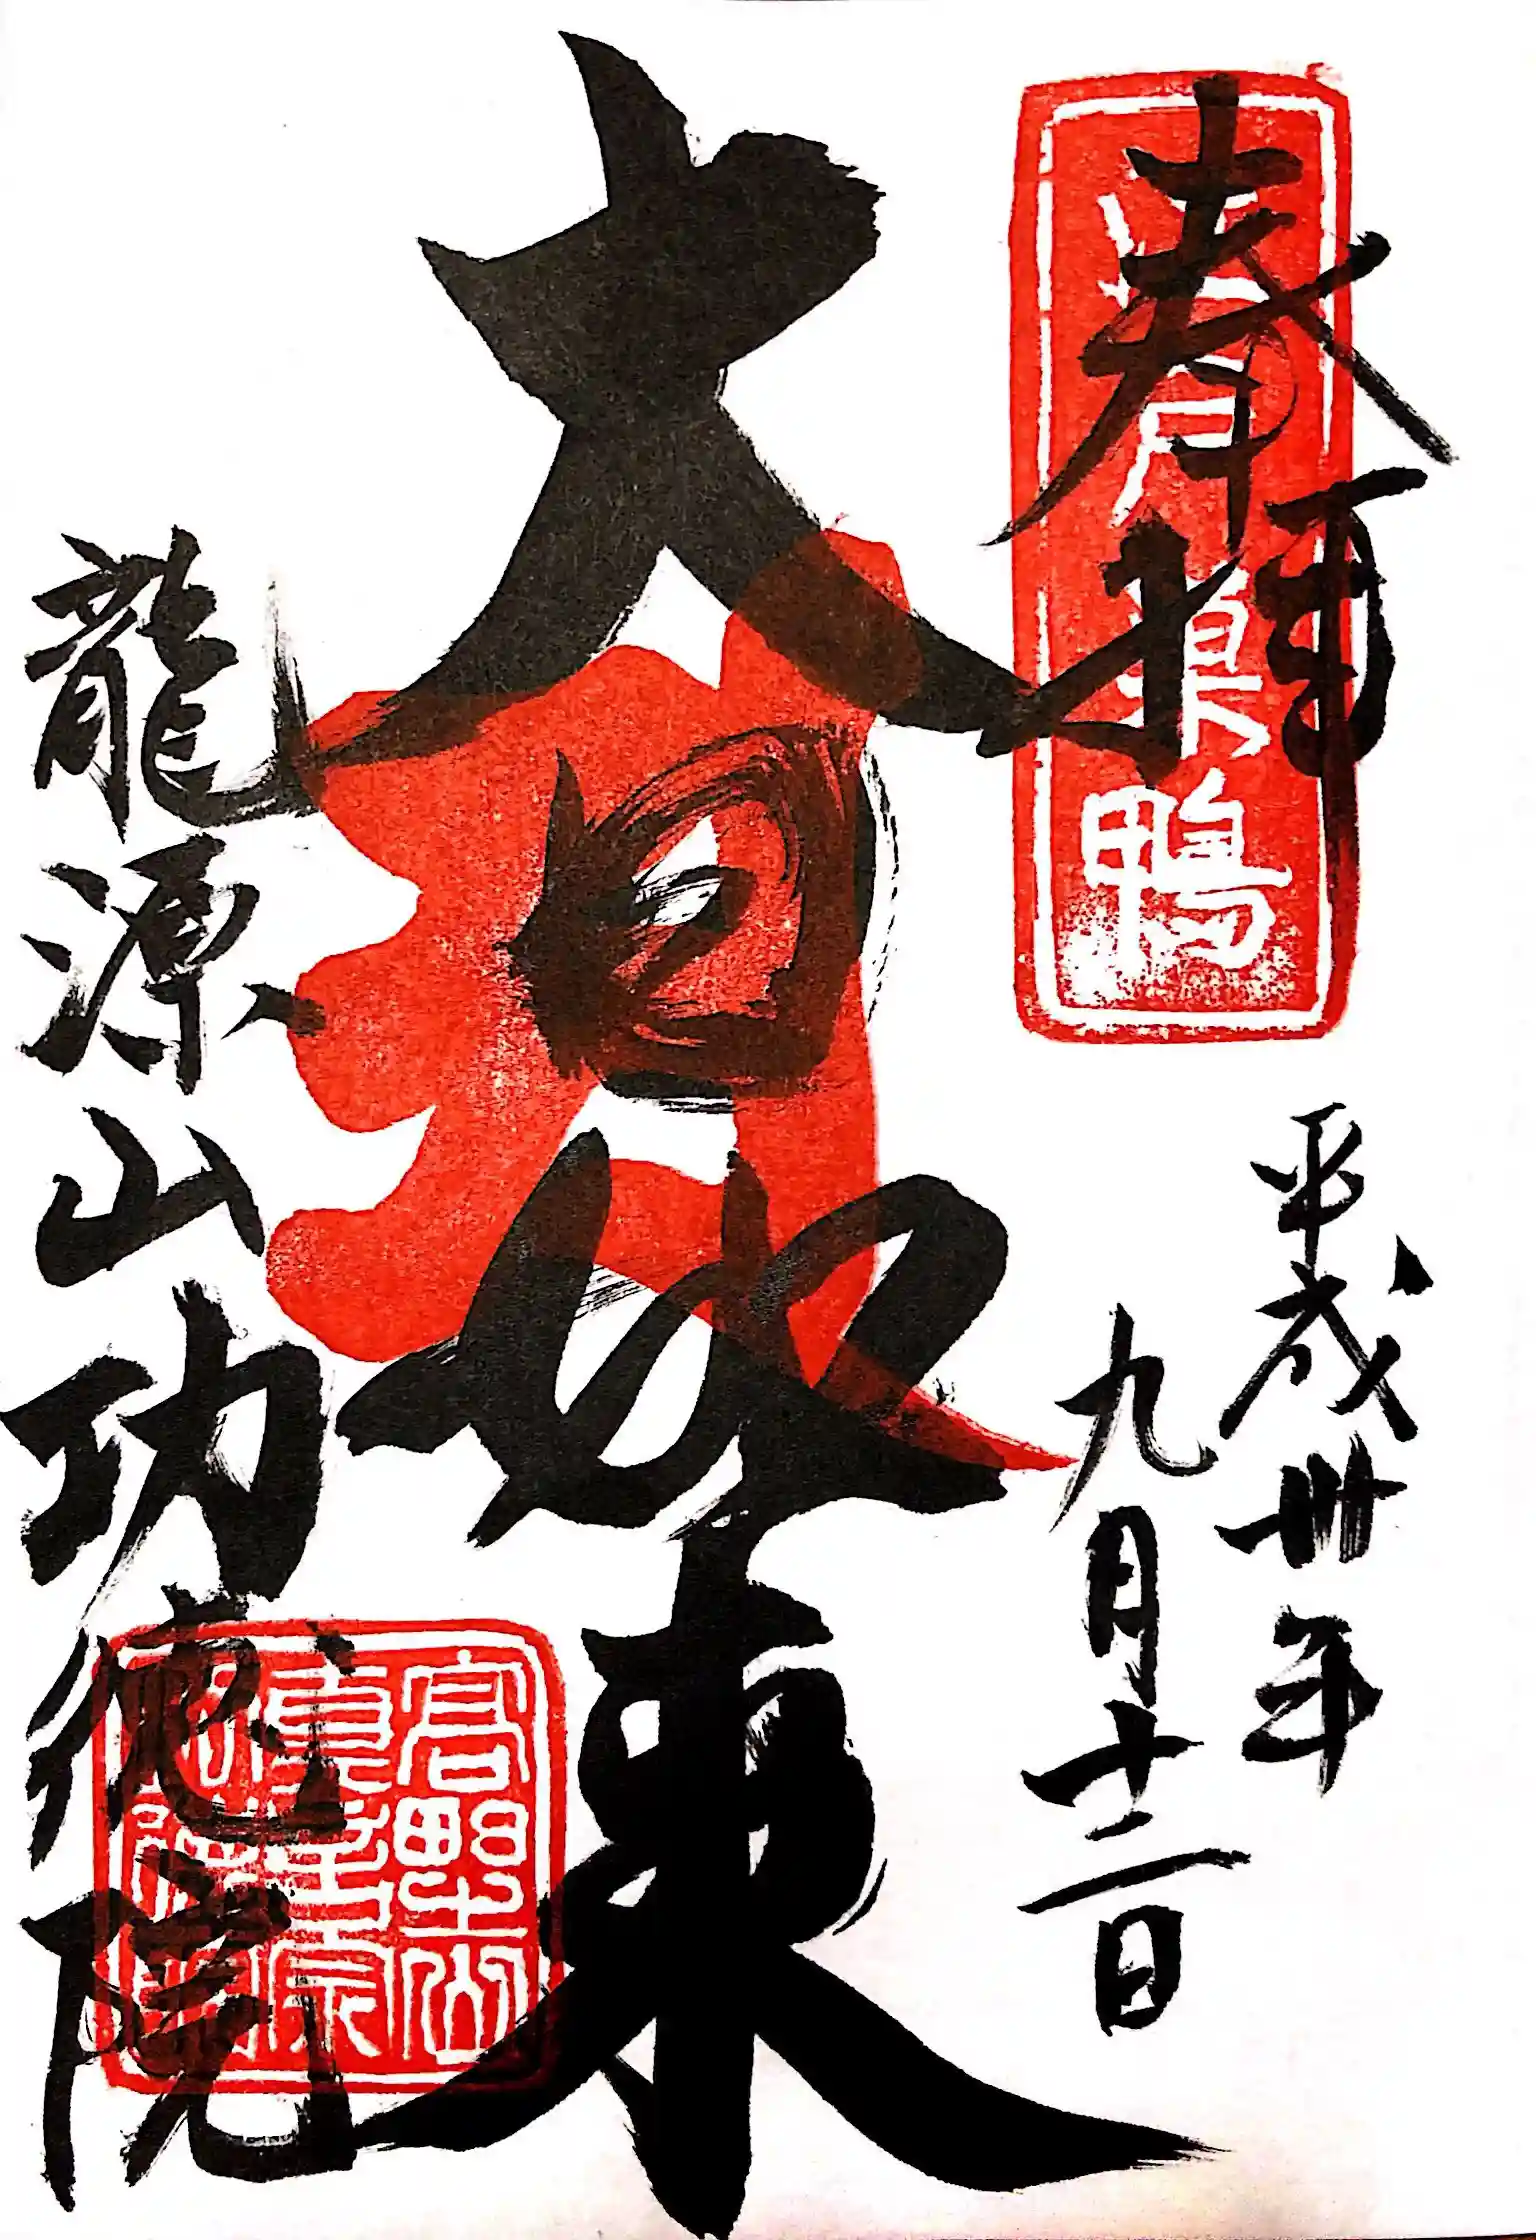 奉拝
江戸巣鴨
平成卅年
九月十二日
大日如来
龍源山功徳院
高野山
眞言宗